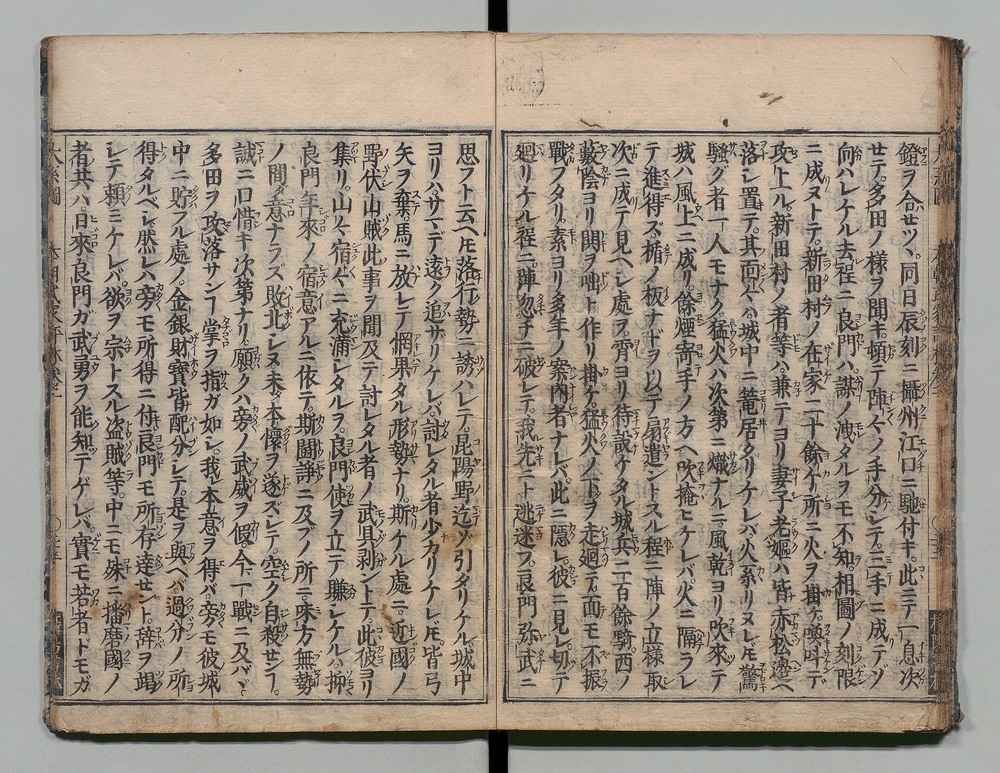 鐙ヲ合セツヽ同日辰刻ニ攝州江口ニ馳付キ此ニテ一息次
セテ多田ノ様ヲ聞キ頓テ陣々ノ手分シテ三手ニ成テゾ
向ハレケル去程ニ良門ハ謀ノ洩タルヲモ不知相圖ノ刻限
ニ成ヌトテ新田村ノ在家二十余ケ所ニ火ヲ掛ケ喚叫デ
攻上ル新田村ノ者等ハ兼テヨリ妻子老嫗ハ皆赤松邊ヘ
落シ置テ其面々ハ城中ニ篭居タリケレバ火系リヌレ𪜈驚
騒グ者一人モナク猛火ハ次第ニ熾ナルニ風乾ヨリ吹來テ
城ハ風上ニ成リ餘煙寄手ノ方ヘ吹掩ヒケレバ火ニ隔ラレ
テ進得ズ楯ノ板ナドヲ以テ扇遣ントスル程ニ陣ノ立様取
次ニ成テ見ヘシ處ヲ霄ヨリ待設ケタル城兵二百餘騎西ノ
薮陰ヨリ鬨ヲ咄ト作リ掛ケ猛火ノ下ヲ走廻テ面モ不振
戰フタリ素ヨリ多年ノ案内者ナレバ此ニ隱レ彼ニ見レ切テ
廻リケル程ニ陣忽チニ破レテ我先ニト逃迷フ良門弥武ニ
思フト云ヘ𪜈落行勢ニ誘ハレテ昆陽野迄ゾ引タリケル城中
ヨリハサマデ遠ク追サリケレバ討レタル者少カリケレ𪜈皆弓
矢ヲ棄馬ニ放レテ惘果タル形勢ナリ斯ケル處ニ近國ノ
野伏山賊此事ヲ聞及テ討レタル者ノ武具剥ントテ此彼ヨリ
集リ山々宿々ニ充滿レタルヲ良門使ヲ立テ賺シケルハ抑
良門年來ノ宿意アルニ依テ斯鬪諍ニ及ブノ所ニ味方無勢
ノ間ダ意ナラズ敗北シヌ未ダ本懷ヲ遂ズシテ空ク自殺セン ヿ
誠ニ口惜キ次第ナリ願クハ旁ノ武威ヲ假今一戰ニ及バヾ
多田ヲ攻落サン ヿ掌ヲ指ガ如シ我本意ヲ得バ旁モ彼城
中ニ貯フル處ノ金銀財寶皆配分シテ是ヲ與ヘバ過分ノ所
得タルベシ然レハ旁モ所得ニ付良門モ所存達セント辞ヲ竭
シテ頼ミケレバ欲ヲ宗トスル盗賊等中ニモ殊ニ播磨國ノ
者共ハ日來良門ガ武勇ヲ能知テゲレバ實モ若者ドモガ